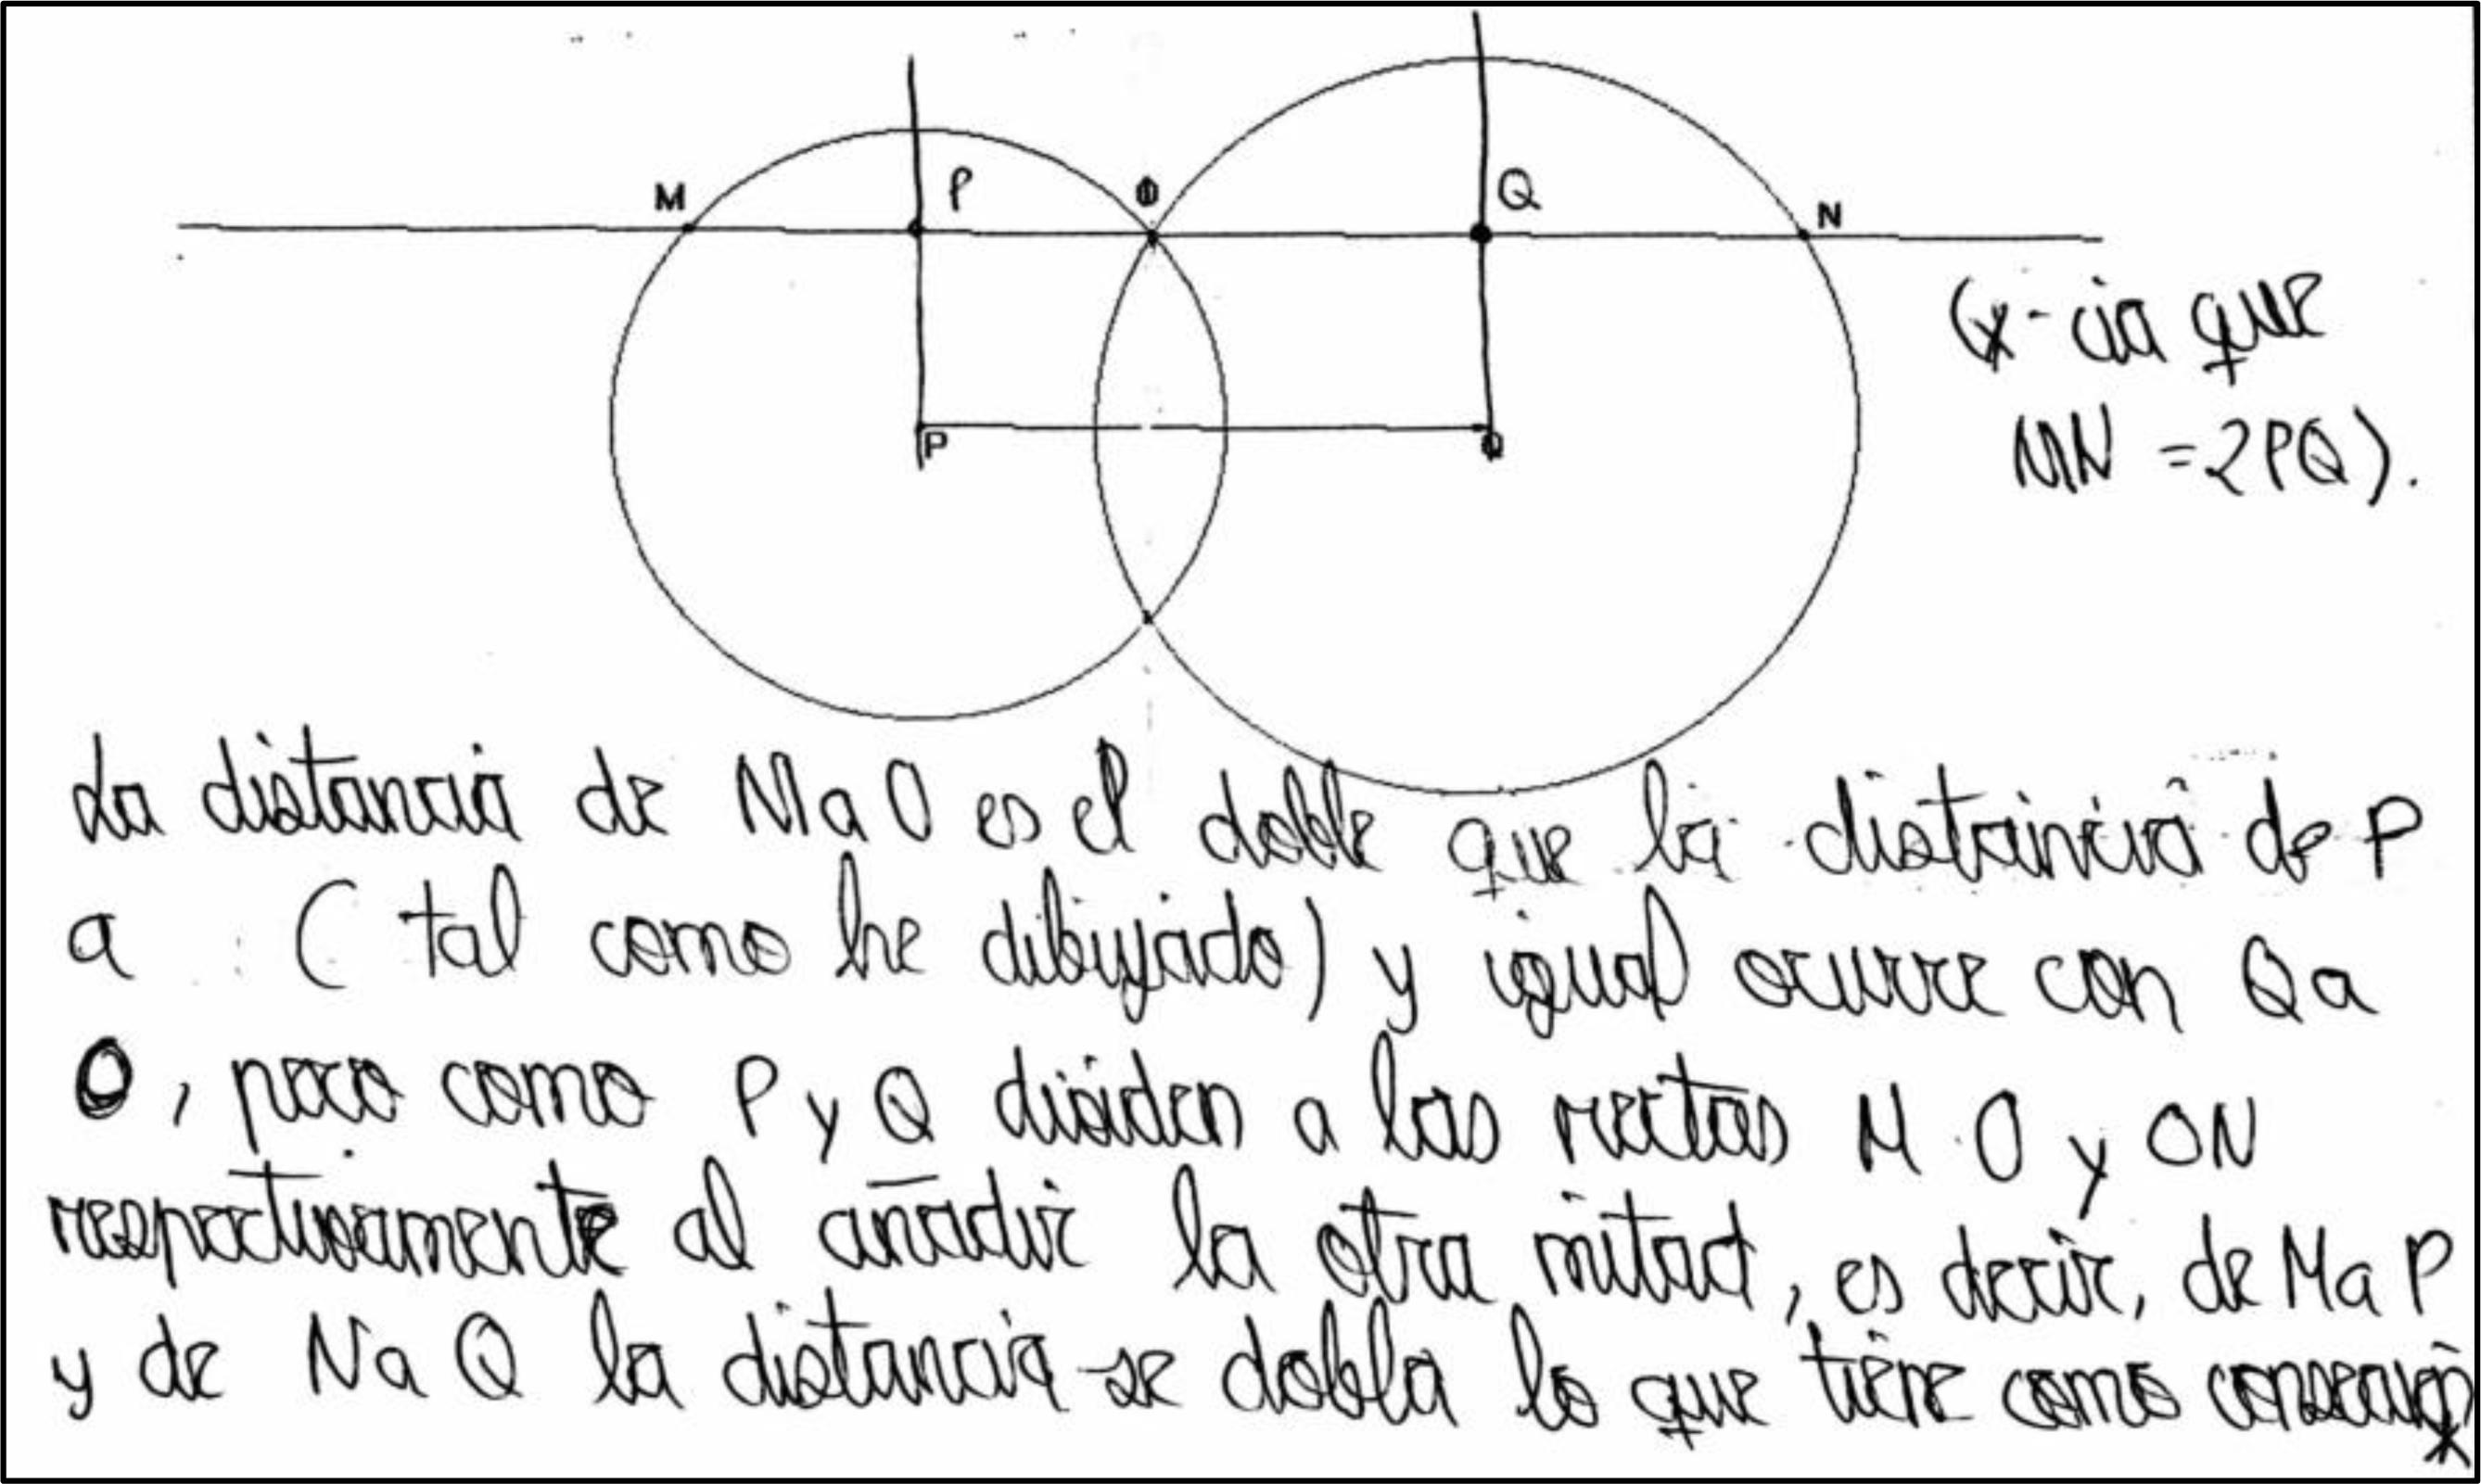 M P O Q N
P Q
(x-cia que
MN = 2PQ).
La distancia de M a O es el doble que la distancia de P
a ( tal como he dibujado) y igual ocurre con Q a
O, pero como P y Q dividen a las rectas M O y ON
respectivamente al añadir la otra mitad, es decir, de M a P
y de N a Q la distancia se dobla lo que tiene como consecuen
x